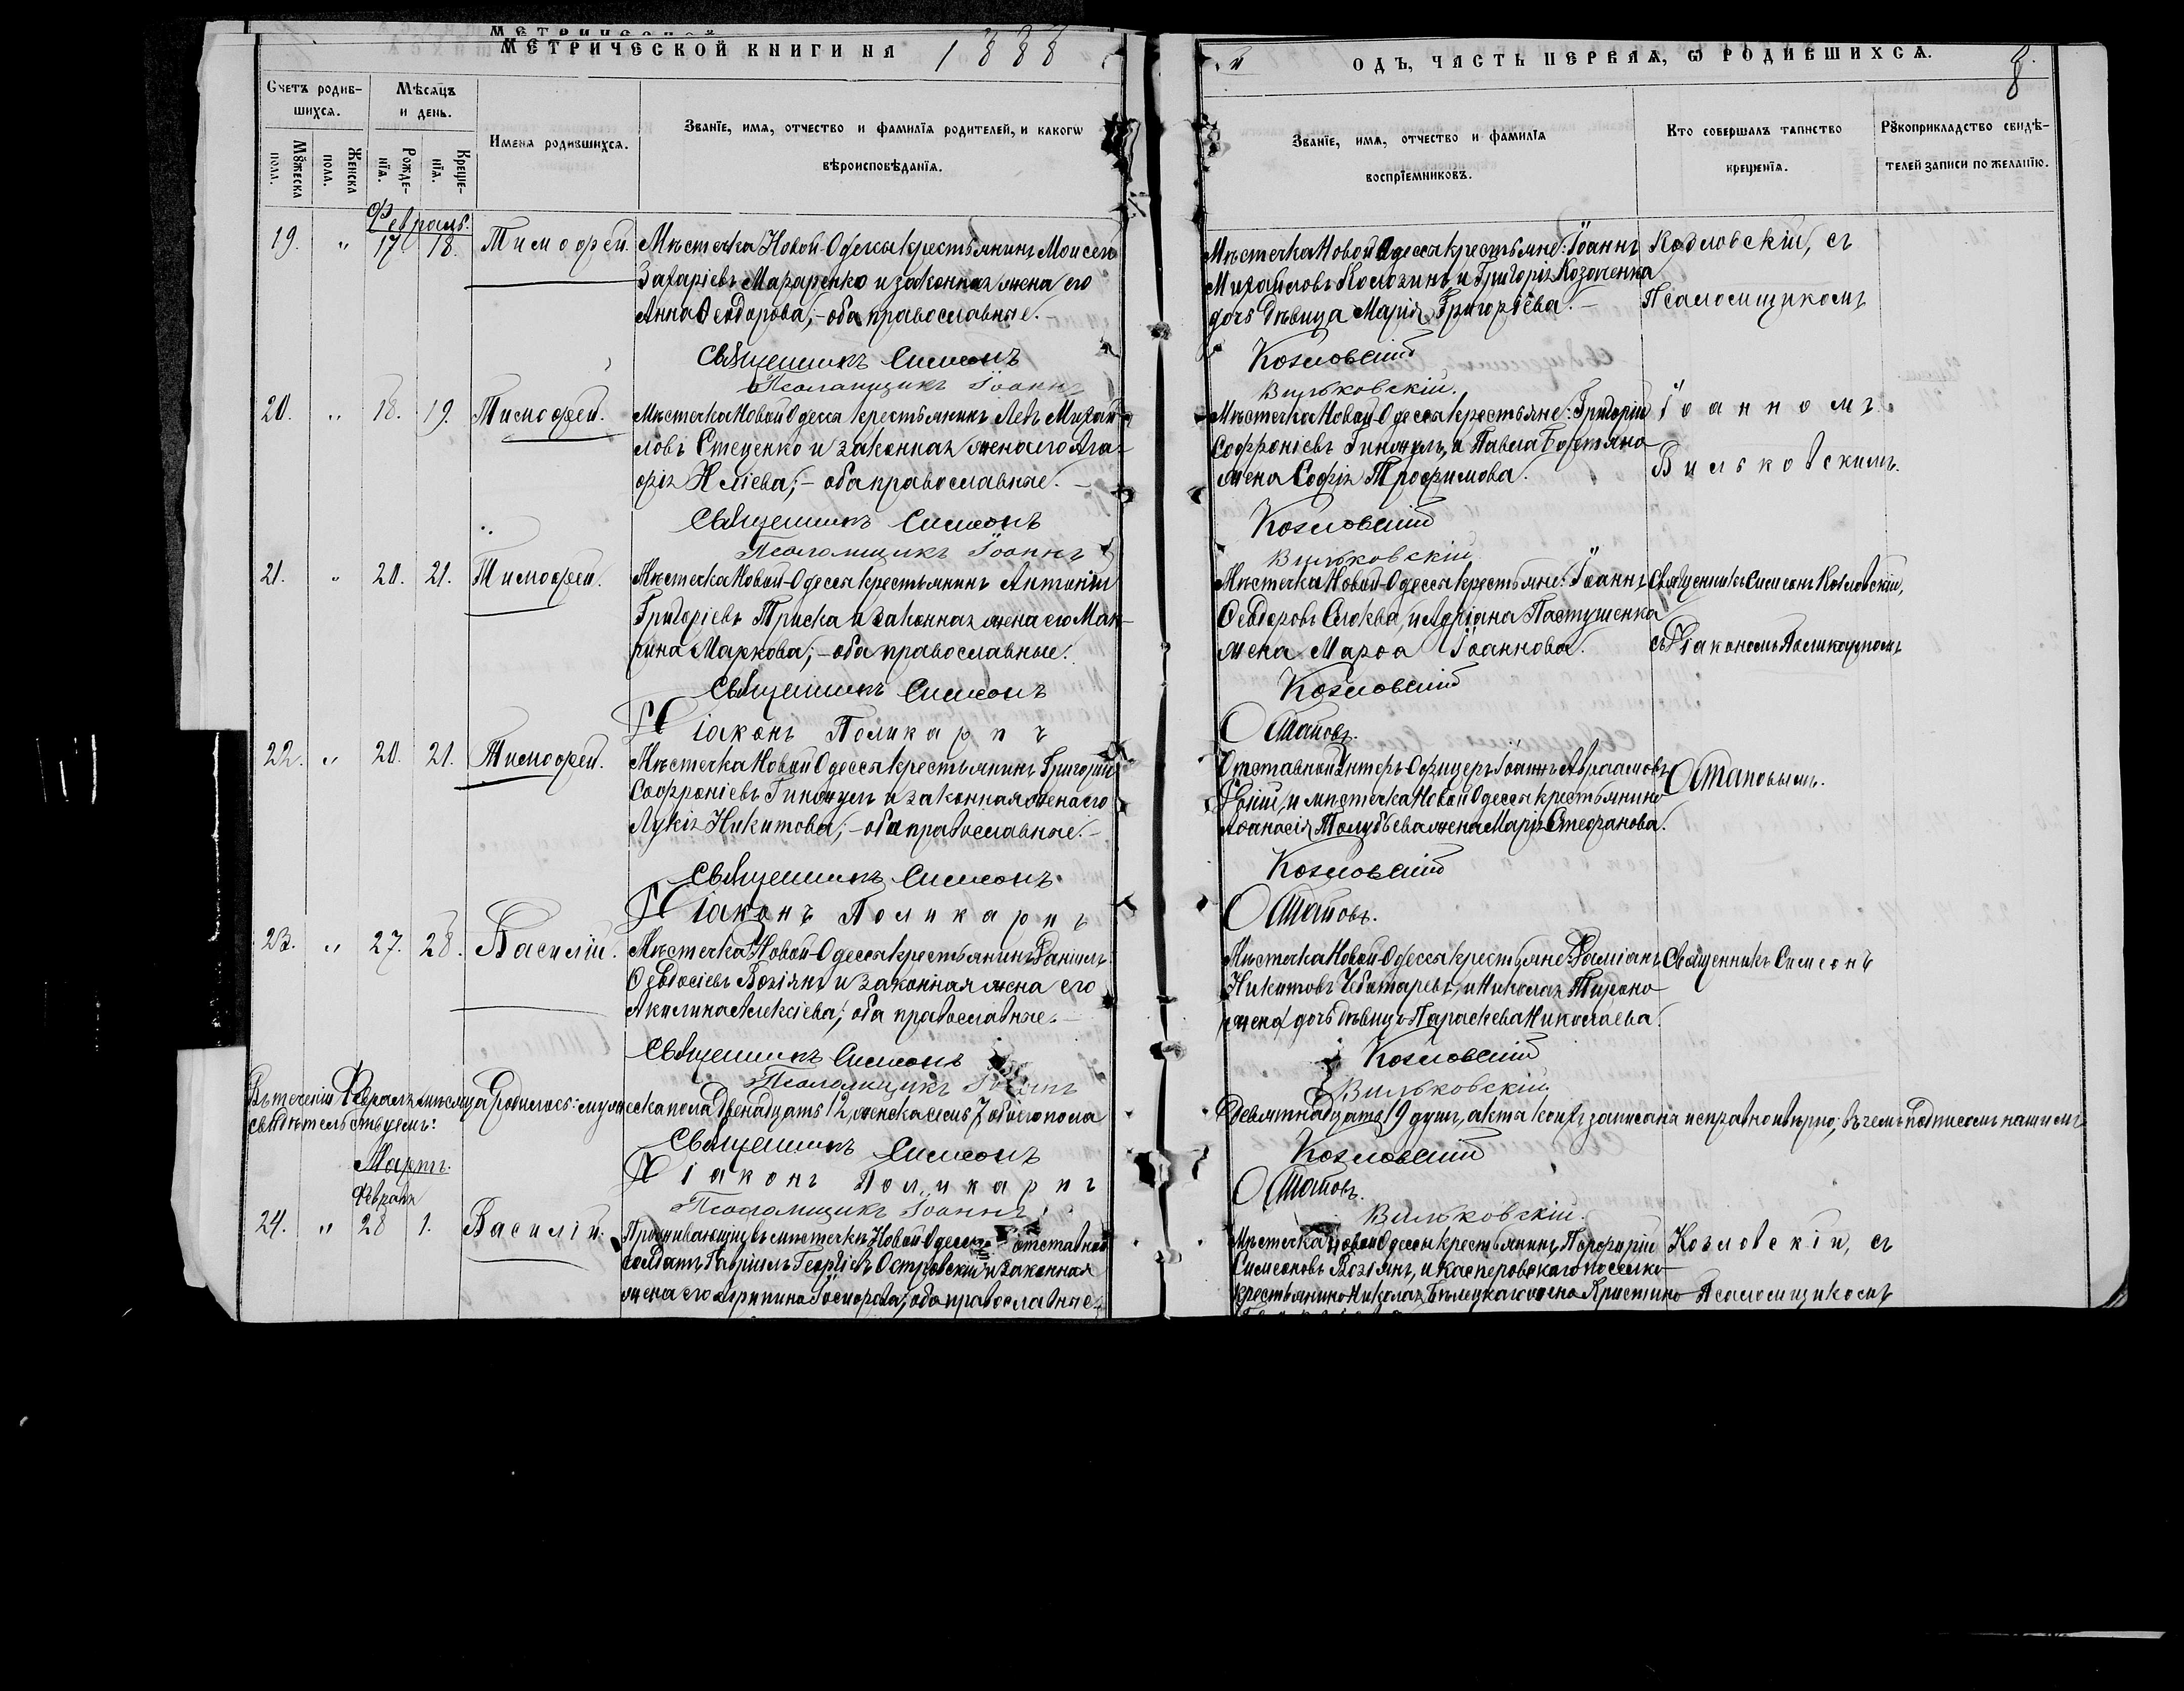 МЕТРИЧЕСКОЙ КНИГИ НА 1888
Счетъ родив-
шихся.
Мѣсяцъ
и день.
Имена родившихся.
Званїе, имя, отчество и фамилїя родителей, и какогѡ
вѣроисповѣданїя.
Мꙋжеска
пола.
Женска
пола.
Рожде-
нїя.
Креще-
нїя.
Февраль.
19. " 17 18. Тимофей. Мѣстечка Новой-Одессы крестьянинъ Моисей
Захаріевъ Макаренко и законная жена его
Анна Ѳеодорова, - оба православные. -
Священникъ Симеонъ
Псаломщикъ Іоаннъ
20. " 18. 19. Тимофей. Мѣстечка Новой Одессы крестьянинъ Левъ Михай-
ловъ Стеценко и законная жена его Ага-
фія Иліева; - оба православные. -
Священникъ Симеонъ
Псаломщикъ Іоаннъ
21. " 20. 21. Тимофей. Мѣстечка Новой-Одессы крестьянинъ Антоній
Григоріевъ Триска и законная жена его Мак-
рина Маркова; - оба православные.
Священникъ Симеонъ
Діаконъ Поликарпъ
22. " 20. 21. Тимофей. Мѣстечка Новой Одессы крестьянинъ Григорій
Софроніевъ и законная жена его
Лукія Никитова; - оба православные. -
Священникъ Симеонъ
Діаконъ Поликарпъ
23. " 27. 28. Василій. Мѣстечка Новой-Одессы крестьянинъ Даніилъ
Ѳеодосіевъ Возіянъ и законная жена его
Акилина Алексіева; оба православные. -
Священникъ Симеонъ
Псаломщикъ Іоаннъ
Въ теченіи Февраля мѣсяца родилось: мужеска пола двенадцать 12, женска семь 7 обоего пола
свидѣтельствуемъ:
Священникъ Симеонъ
Діаконъ Поликарпъ
Псаломщикъ Іоаннъ
Мартъ.
Февраля
24. " 28 1. Василій. Проживающій въ мѣстечкѣ Новой Одессѣ отставной
солдатъ Гавріилъ Георгіевъ Островскій и законная
жена его Агрипина оба православные.
одъ, ЧАСТЬ ПЕРВАЯ, Ѡ РОДИВШИХСЯ. 8.
Званїе, имя, отчество и фамилїя
воспрїемниковъ.
Кто совершалъ таинство
крещенїя.
Рꙋкоприкладство свидѣ-
телей записи по желанїю.
Мѣстечка Новой Одессы крестьяне: Іоаннъ
Михайловъ Колозинъ и Григорія Козаченка
дочь дѣвица Марія Григоріева. -
Козловскій
Вильковскій.
Козловскій, съ
Псаломщикомъ
Мѣстечка Новой-Одессы крестьяне: Григорій
Софроніевъ и Павла
жена Софія Трофимова.
Козловскій
Вильковскій
Іоанномъ
Вильковскимъ.
Мѣстечка Новой-Одессы крестьяне: Іоаннъ
Ѳеодоровъ Слюква, и Адріана Пастушенка
жена Марѳа Іоаннова.
Козловскій
Остаповъ.
Священникъ Симеонъ Козловскій,
съ Діакономъ Поликарпомъ
Отставной Унтеръ-Офицеръ Іоаннъ Авраамовъ
и мѣстечка Новой Одессы крестьянина
Афанасія Голубьева жена Марія Стефанова.
Козловскій
Остаповъ.
Остаповымъ.
Мѣстечка Новой-Одессы крестьяне: Даміанъ
Никитовъ Чеботаревъ, и Николая
дочь дѣвица Параскева Николаева.
Козловскій
Вильковскій
Священникъ Симеонъ
Девятнадцать 19 душъ, акта коихъ записана исправно и вѣрно; въ чемъ подписомъ нашимъ
Козловскій
Остаповъ.
Вильковскій.
Мѣстечка Новой Одессы крестьянинъ Порфирій
Симеоновъ Возіянъ, и Касперовскаго поселка
крестьянина Николая Бѣлецкаго жена Кристина
Козловскій, съ
Псаломщикомъ